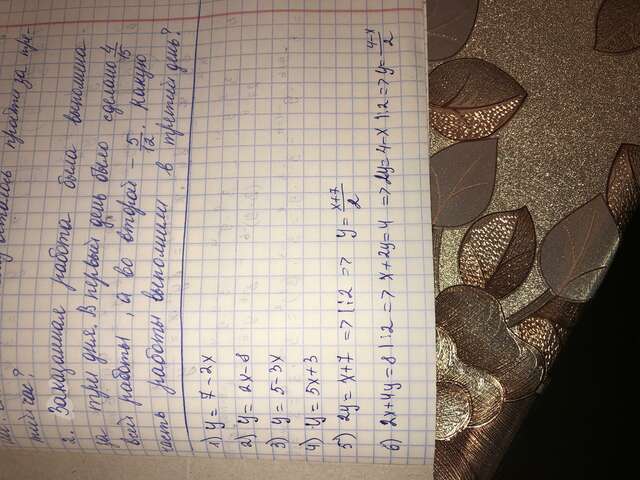 простоять за тре-
тий час?
2. Запланированная работа была выполнена
за три дня. В первый день было сделано 4/15
всей работы, а во второй – 5/12. Какую
часть работы выполнили в третий день?
1) y = 7 - 2x
2) y = 2x - 8
3) y = 5 - 3x
4) y = 5x + 3
5) 2y = x + 7 => |:2 => y = x+7/2
6) 2x + 4y = 8 |:2 => x + 2y = 4 => 2y = 4 - x |:2 => y = 4-x/2